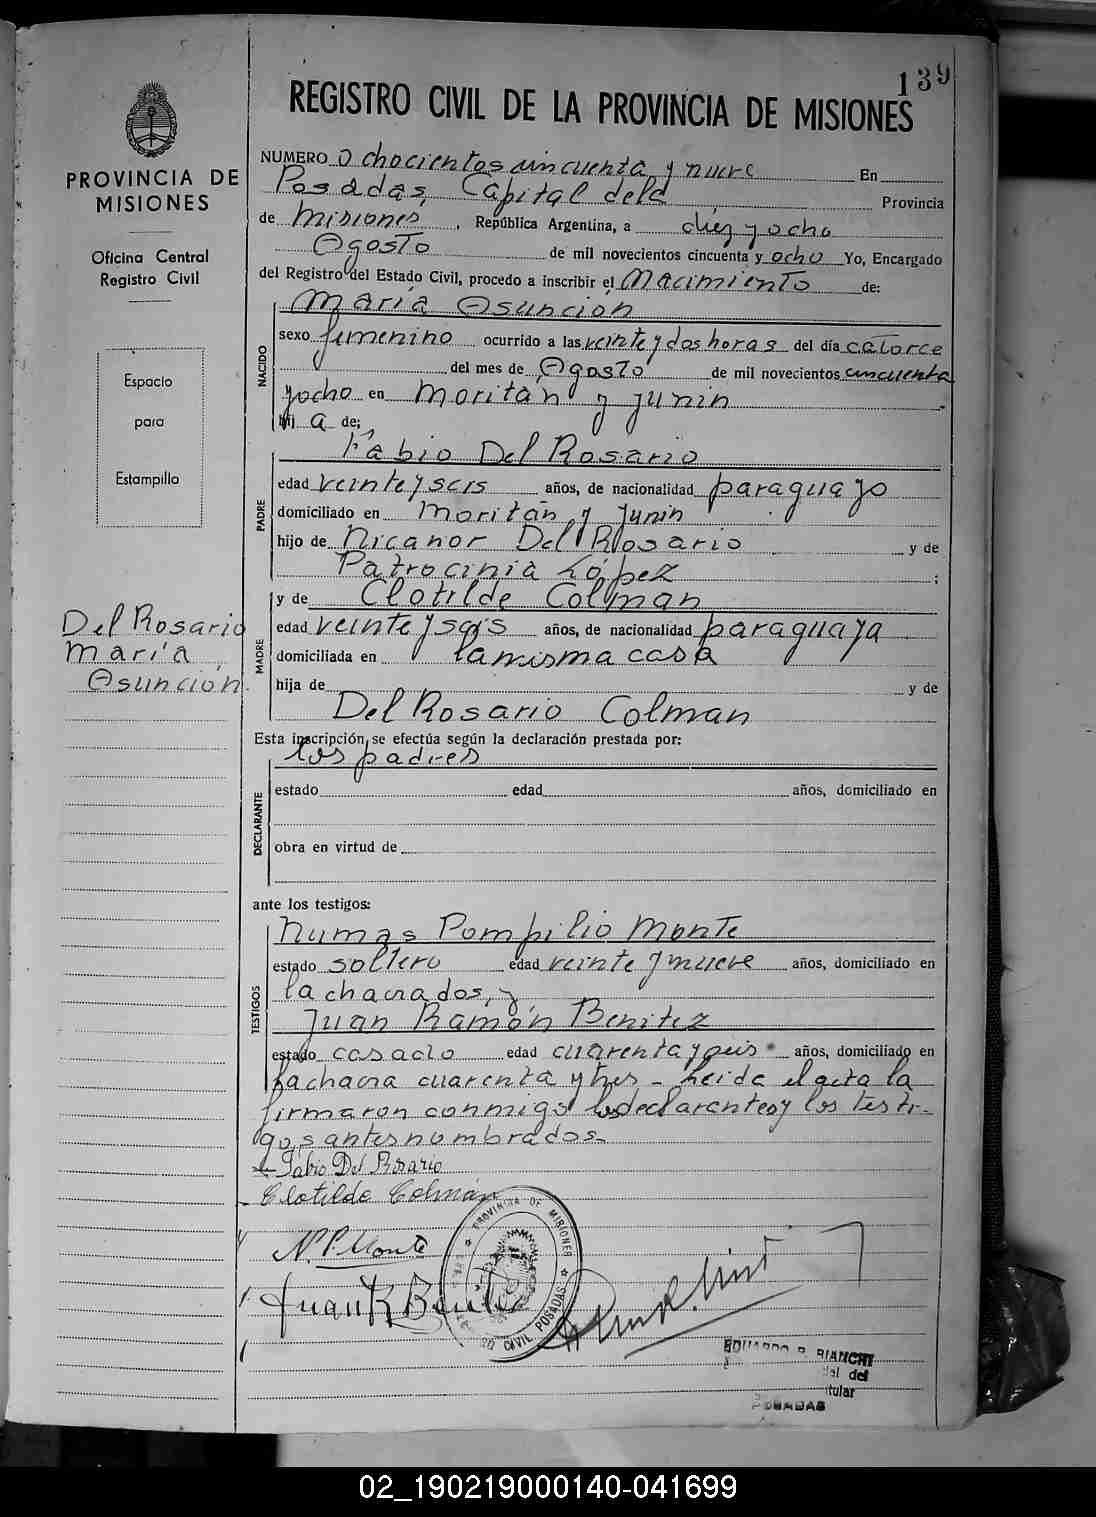 139
REGISTRO CIVIL DE LA PROVINCIA DE MISIONES
PROVINCIA DE
MISIONES
Oficina Central
Registro Civil
Espacio
para
Estampilla
Del Rosario
María
Asunción
NUMERO Ochocientos cincuenta y nueve En
Posadas, Capital dela Provincia
de Misiones, República Argentina, a diez y ocho
Agosto de mil novecientos cincuenta y ocho Yo, Encargado
del Registro del Estado Civil, procedo a inscribir el Nacimiento de:
María Asunción
NACIDO
sexo femenino ocurrido a las veinte y dos horas del día catorce
del mes de Agosto de mil novecientos cincuenta
y ocho en Moritán y Junín
hij a de:
Fabio Del Rosario
PADRE
edad veinte y seis años, de nacionalidad paraguayo
domiciliado en Moritán y Junin
hijo de Nicanor Del Rosario y de
Patrocinia López ;
y de Clotilde Colman
MADRE
edad veinte y seis años, de nacionalidad paraguaya
domiciliada en la misma casa
hija de y de
Del Rosario Colman
Esta inscripción se efectúa según la declaración prestada por:
los padres
DECLARANTE
estado edad años, domiciliado en
obra en virtud de
ante los testigos:
Numas Pompilio Monte
TESTIGOS
estado soltero edad veinte y nueve años, domiciliado en
la chacra dos, y
Juan Ramón Benitez
estado casado edad cuarenta y seis años, domiciliado en
la chacra cuarenta y tres - Leida el acta la
firmaron conmigo los declarentes y los testi-
gos antes nombrados-
Fabio Del Rosario
Clotilde Colmán
N. P. Monte
Juan R Benitez
PROVINCIA DE MISIONES
CIVIL POSADAS
EDUARDO R. BIANCHI
del
itular
POSADAS
02_190219000140-041699